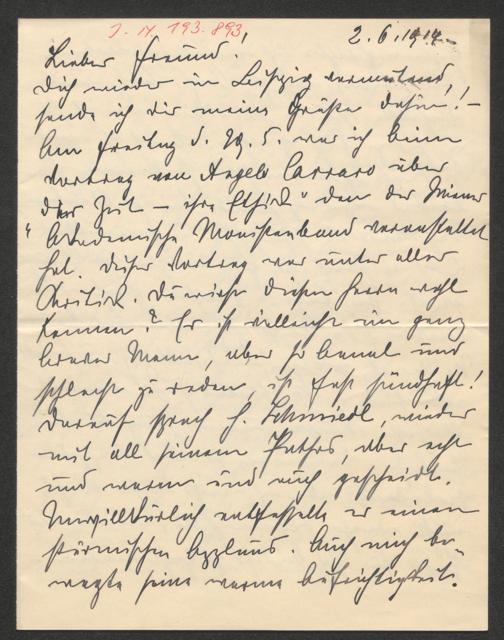 J. N. 193.893
2.6.1914.
Lieber Freund!
Dich wieder in Leipzig vermutend,
sende ich dir meine Grüße dahin! –
Am Freitag d. 29. 5. war ich beim
Vortrag von Angelo Carraro über
Zeit – ihre Ethik" den der Wiener
"Akademische Monistenbund veranstaltet
hat. Dieser Vortrag war unter aller
Kritik. Du wirst diesen Herrn wohl
kennen? Er ist vielleicht ein ganz
braver Mann, aber so banal und
schlecht zu reden, ist fast sündhaft!
Darauf sprach H. Schmiedl, wieder
mit all seinem Pathos, aber echt
und warm und auch gescheidt.
Unwillkürlich entfesselte er einen
stürmischen Applaus. Auch mich be-
wegte seine warme Aufrichtigkeit.